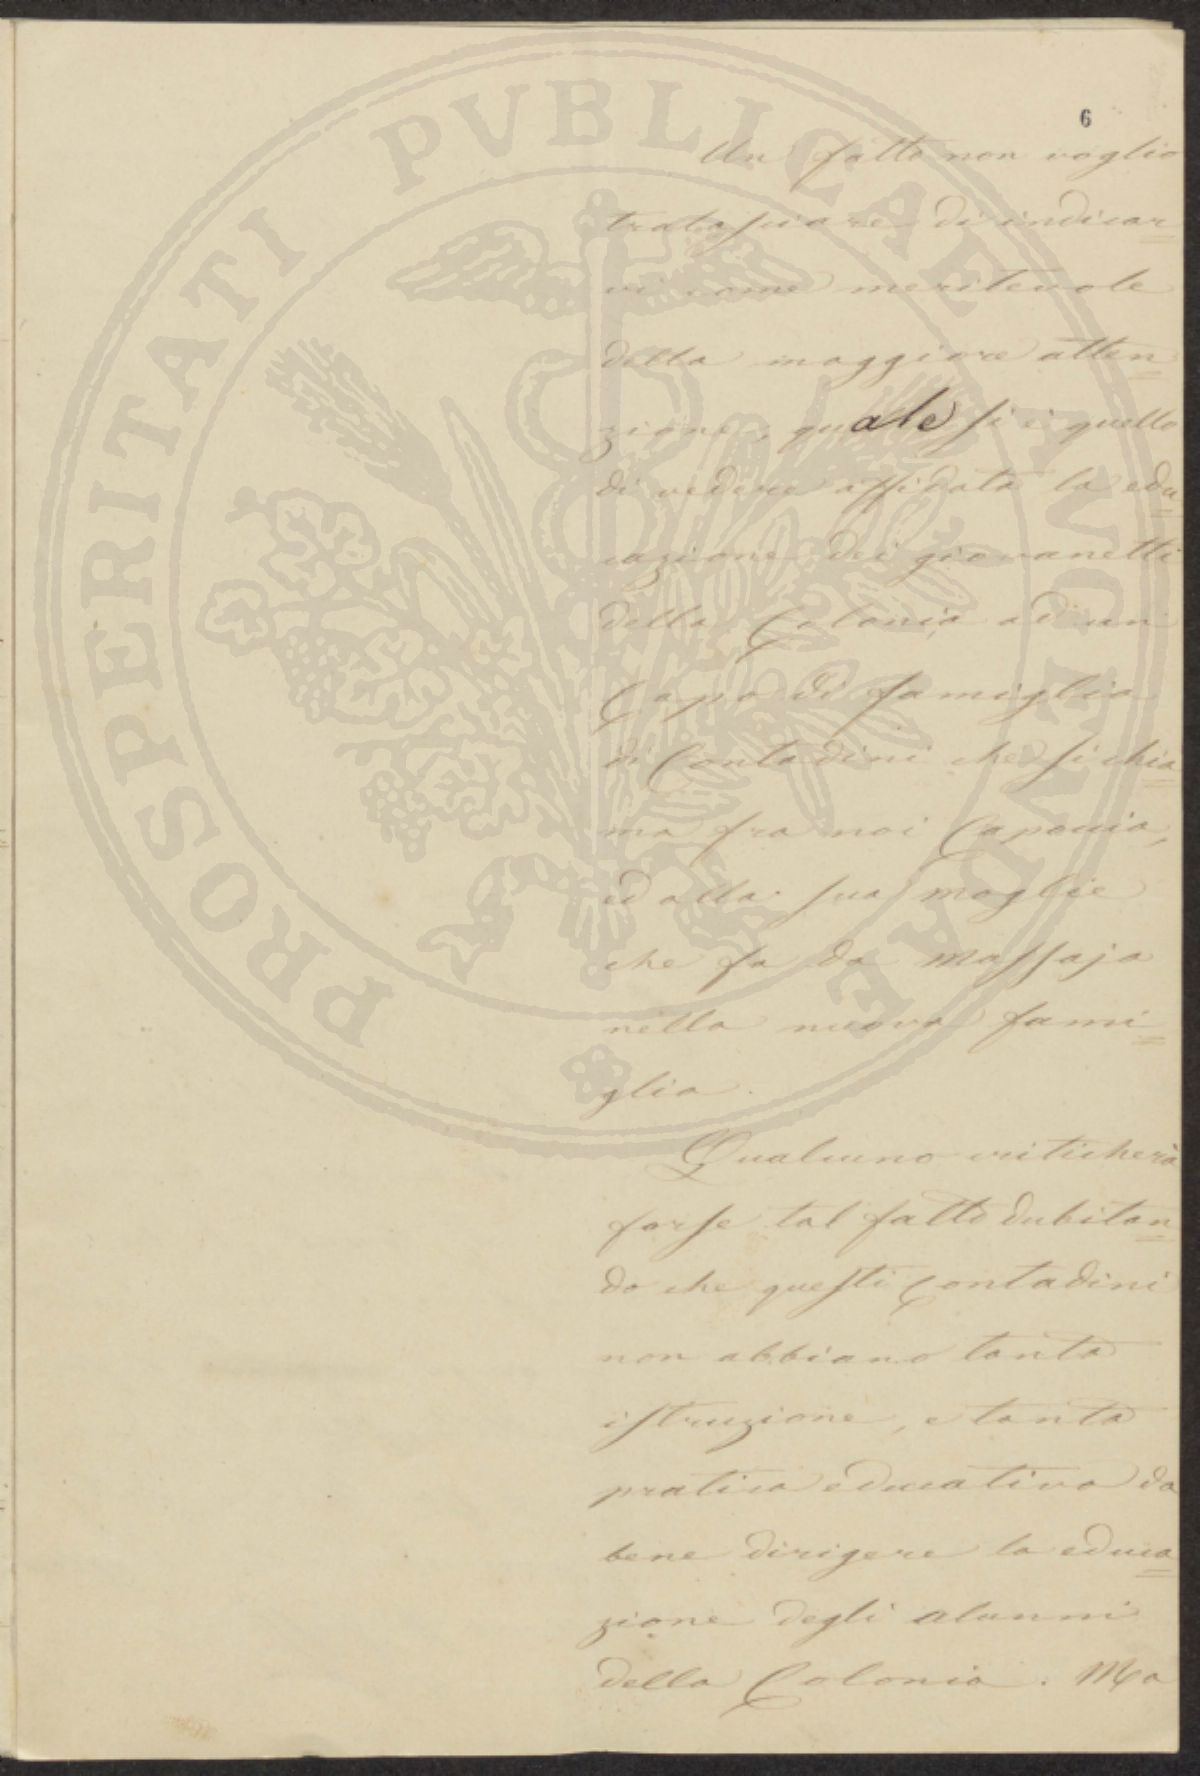 6
Un fatto non voglio
tralasciare di indicar
vi come meritevole
della maggiore atten
zione, quale si è quello
di vedere affidata la edu
cazione dei giovanetti
della Colonia ad un
Capo di famiglia
di Contadini che si chia
ma fra noi Capoccia,
ed alla sua moglie
che fa da massaja
nella nuova fami
glia.
Qualcuno criticherà
forse tal fatto dubitan
do che questi Contadini
non abbiano tanta
istruzione, e tanta
pratica educativa da
bene dirigere la educa
zione degli alunni
della Colonia. Ma
PROSPERITATI PVBLICAE AVGENDAE